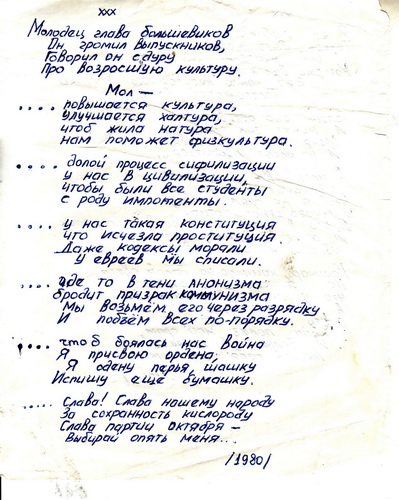 xxx
Молодец глава большевиков
Он громил выпускников,
Говорил он сдуру
Про возросшую культуру.
Мол —
.... повышается культура,
улучшается халтура,
чтоб жила натура
нам поможет физкультура.
.... долой процесс сифилизации
у нас в цивилизации,
чтобы были все студенты
с роду импотенты.
.... у нас такая конституция
что исчезла проституция.
Даже кодексы морали
у евреев мы списали.
.... где то в тени анонизма
бродит призрак коммунизма
Мы возьмём его через разрядку
И побьём всех по-порядку.
.... чтоб боялась нас война
Я присвою ордена,
Я одену перья, шашку
Испишу ещё бумашку.
..... Слава! Слава нашему народу
За сохранность кислороду
Слава партии октября —
Выбирай опять меня...
/1980/